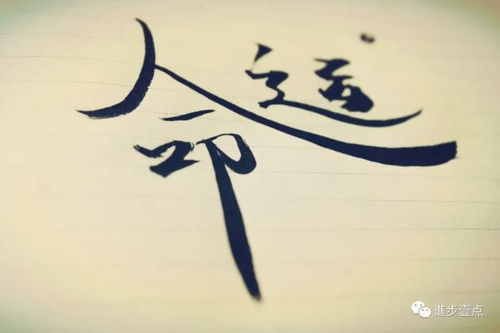 命运
進步壹点